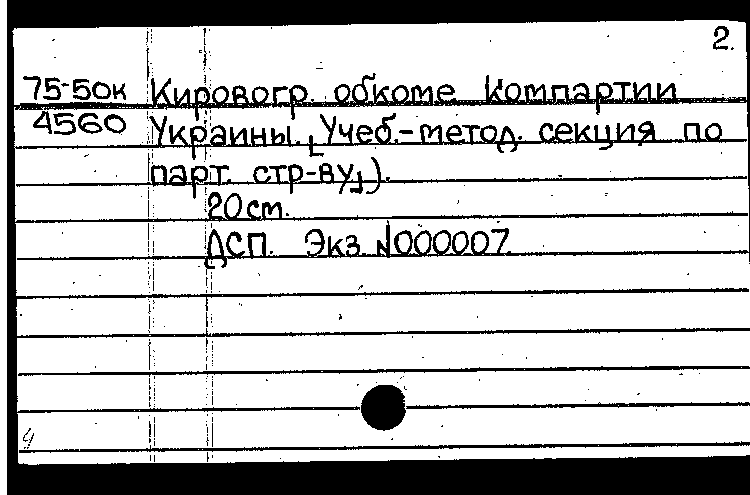 2.
75-50к Кировогр. обкоме Компартии
4560 Украины. [Учеб.-метод. секция по
парт. стр-ву]).
20 см.
ДСП. Экз. №000007.
4